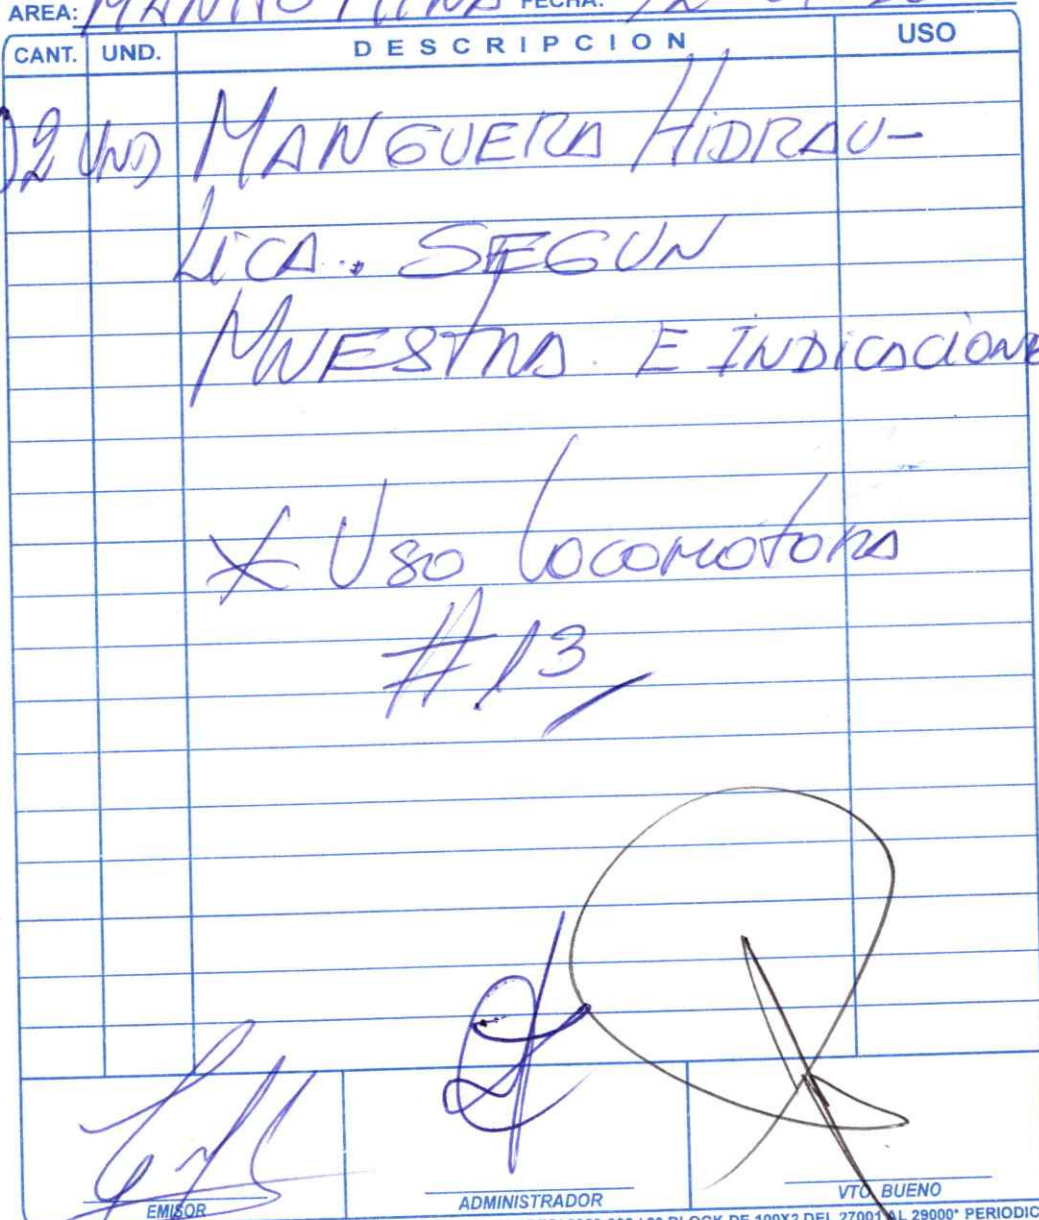 AREA: MANTTO MINA FECHA: 12
CANT. UND. DESCRIPCION USO
02 UND MANGUERA HIDRAU-
LICA. SEGUN
MUESTRA E INDICACIONE
* USO LOCOMOTORA
# 13
EMISOR ADMINISTRADOR VTO. BUENO
BLOCK DE 100X2 DEL 27001 AL 29000* PERIODIC